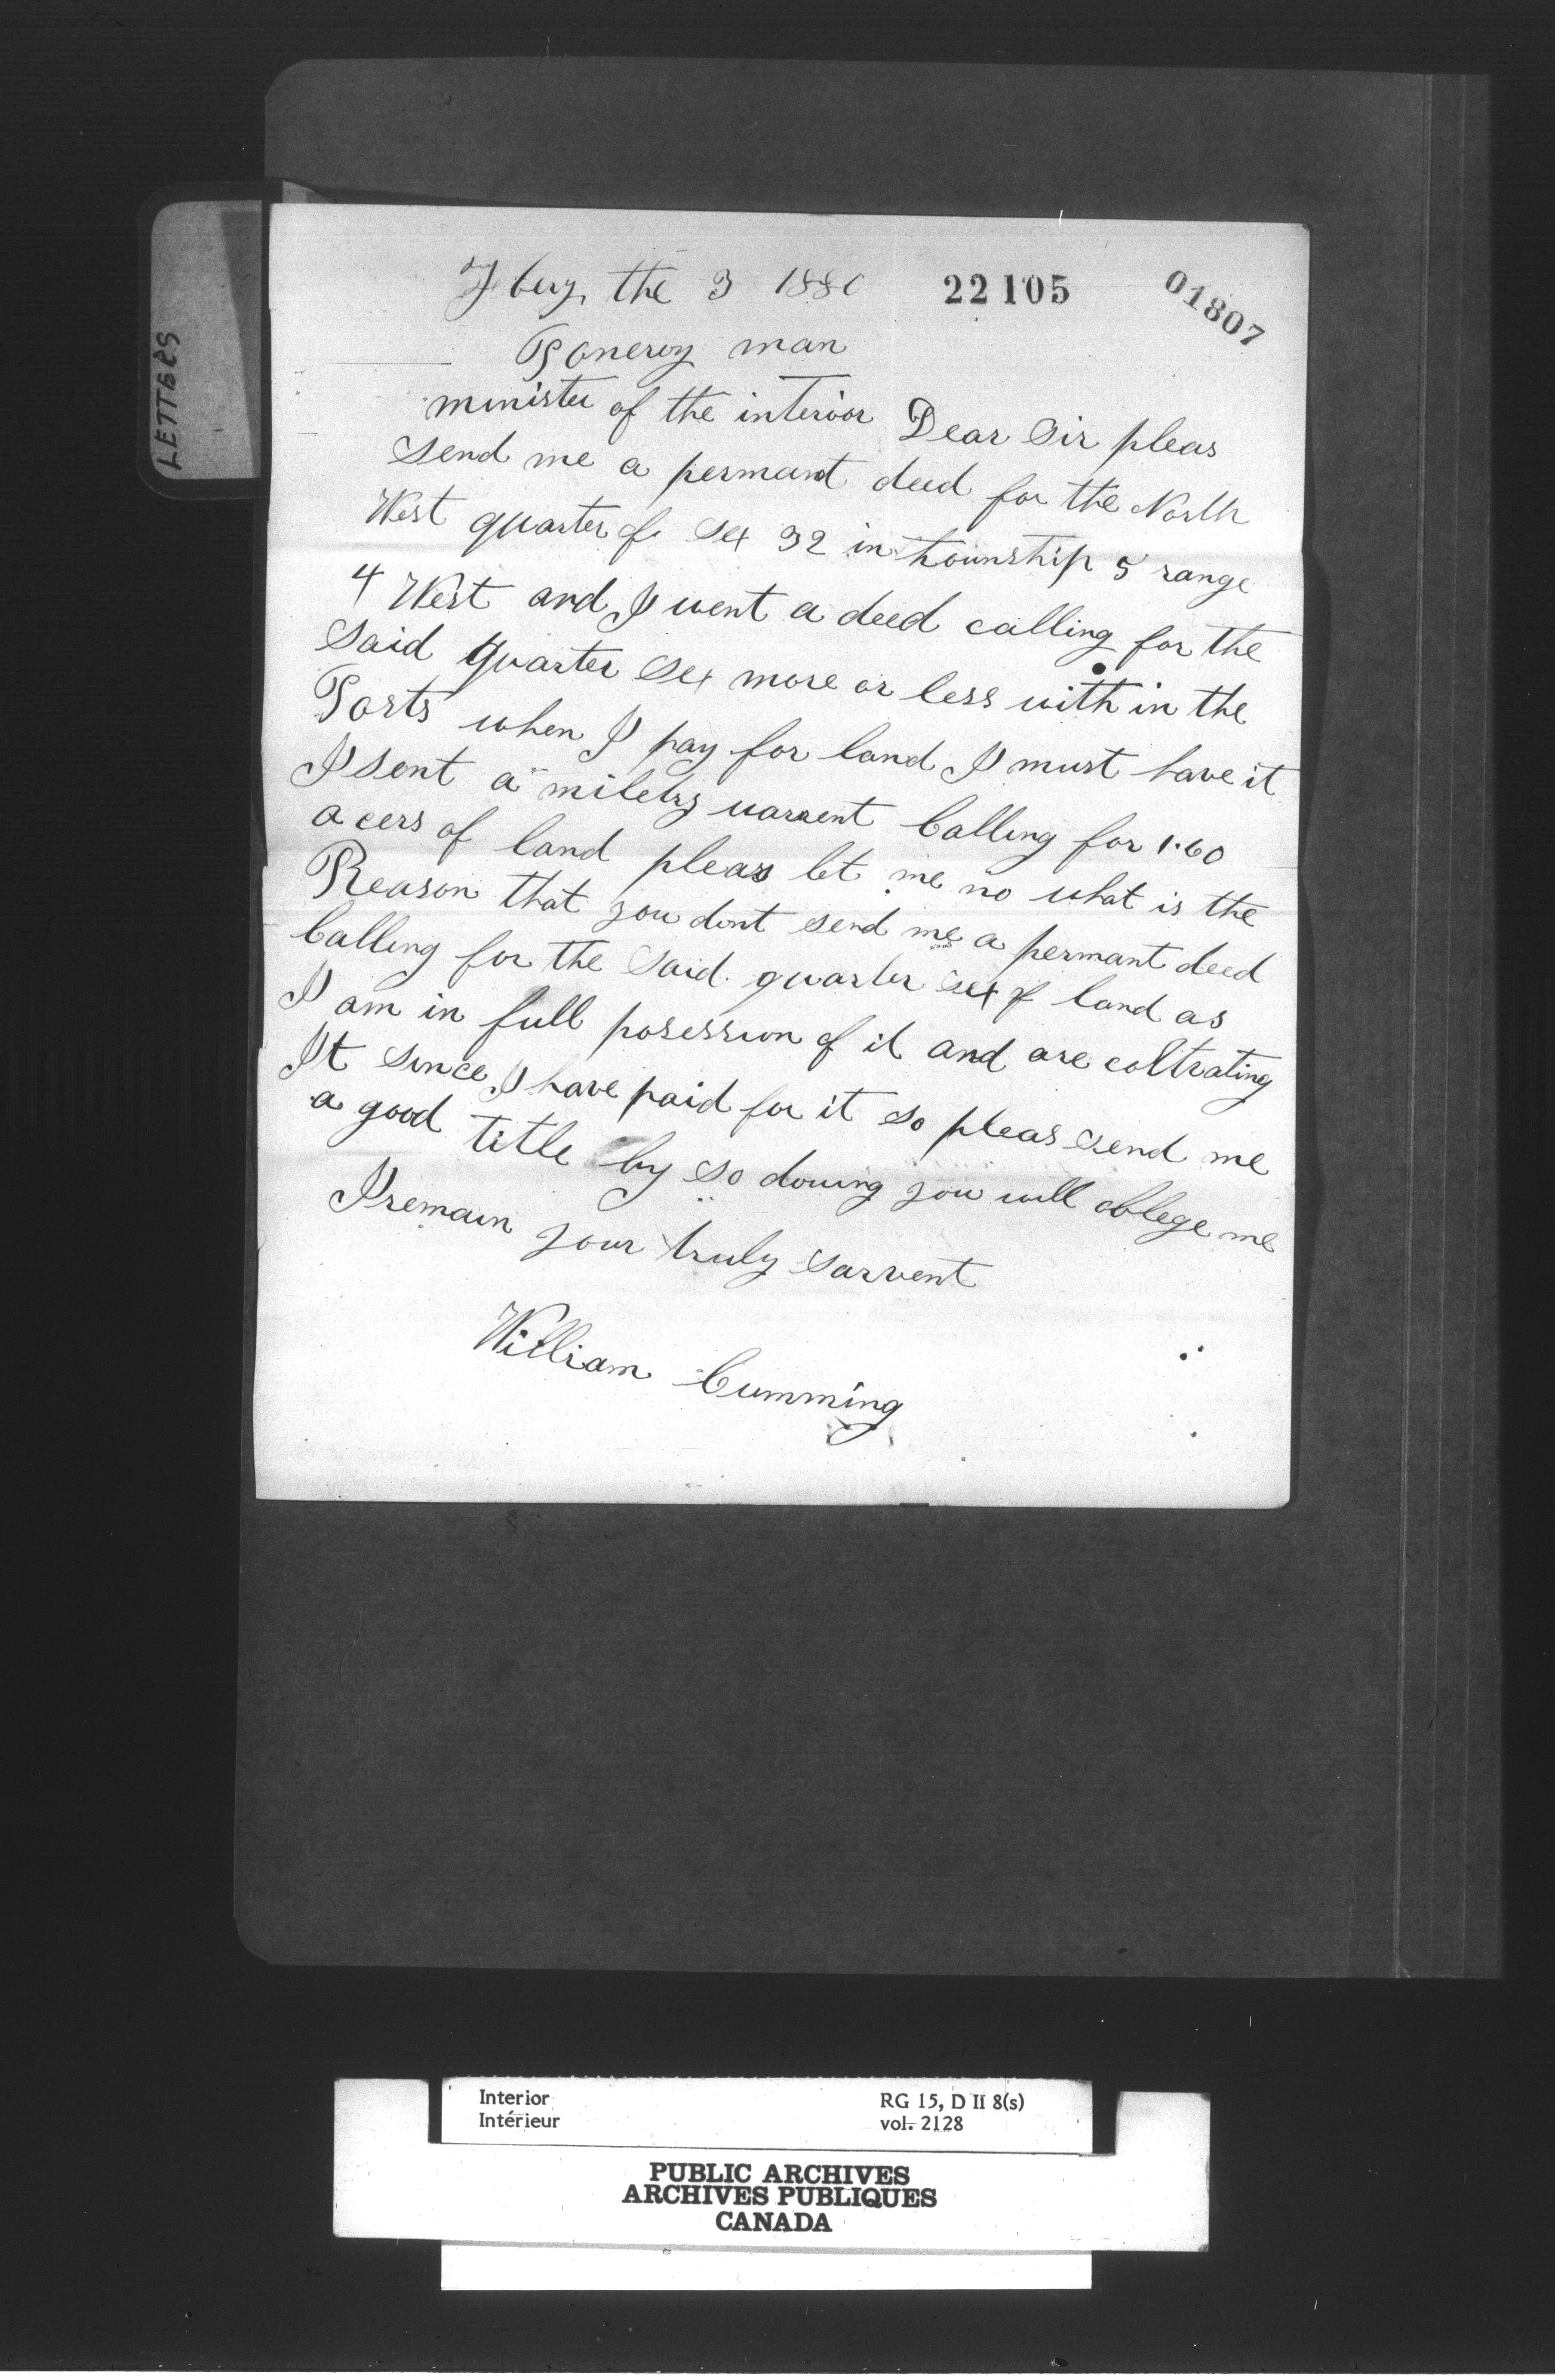 the 3 1880 22105 01807
Pomeroy man
minister of the interior Dear Sir pleas
Send me a permant deed for the North
West quarter of Sex 32 in township 5 range
4 West and I went a deed calling for the
Said quarter Sex more or less with in the
Posts when I pay for land I must have it
I sent a miletry warrent Calling for 1.60
acers of land pleas let me no what is the
Reason that you dont send me a permant deed
Calling for the Said quarter Sex of land as
I am in full posession of it and are coltvating
It since I have paid for it so pleas send me
a good title by so douing you will oblege me
I remain your truly sarvent
William Cumming
LETTERS
Interior
Intérieur
RG 15, D II 8(s)
vol. 2128
PUBLIC ARCHIVES
ARCHIVES PUBLIQUES
CANADA